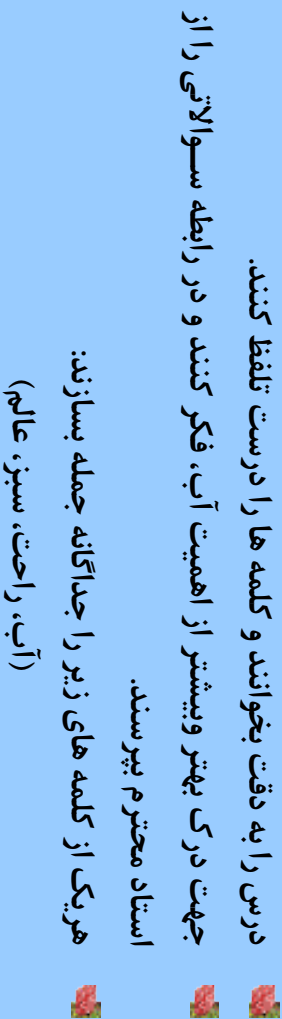 درس را به دقت بخوانند و کلمه ها را درست تلفظ کنند.
جهت درک بهتر وبیشتر از اهمیت آب، فکر کنند و در رابطه سوالاتی را از
استاد محترم بپرسند.
هریک از کلمه های زیر را جداگانه جمله بسازند:
(آب، راحت، سبز، عالم)